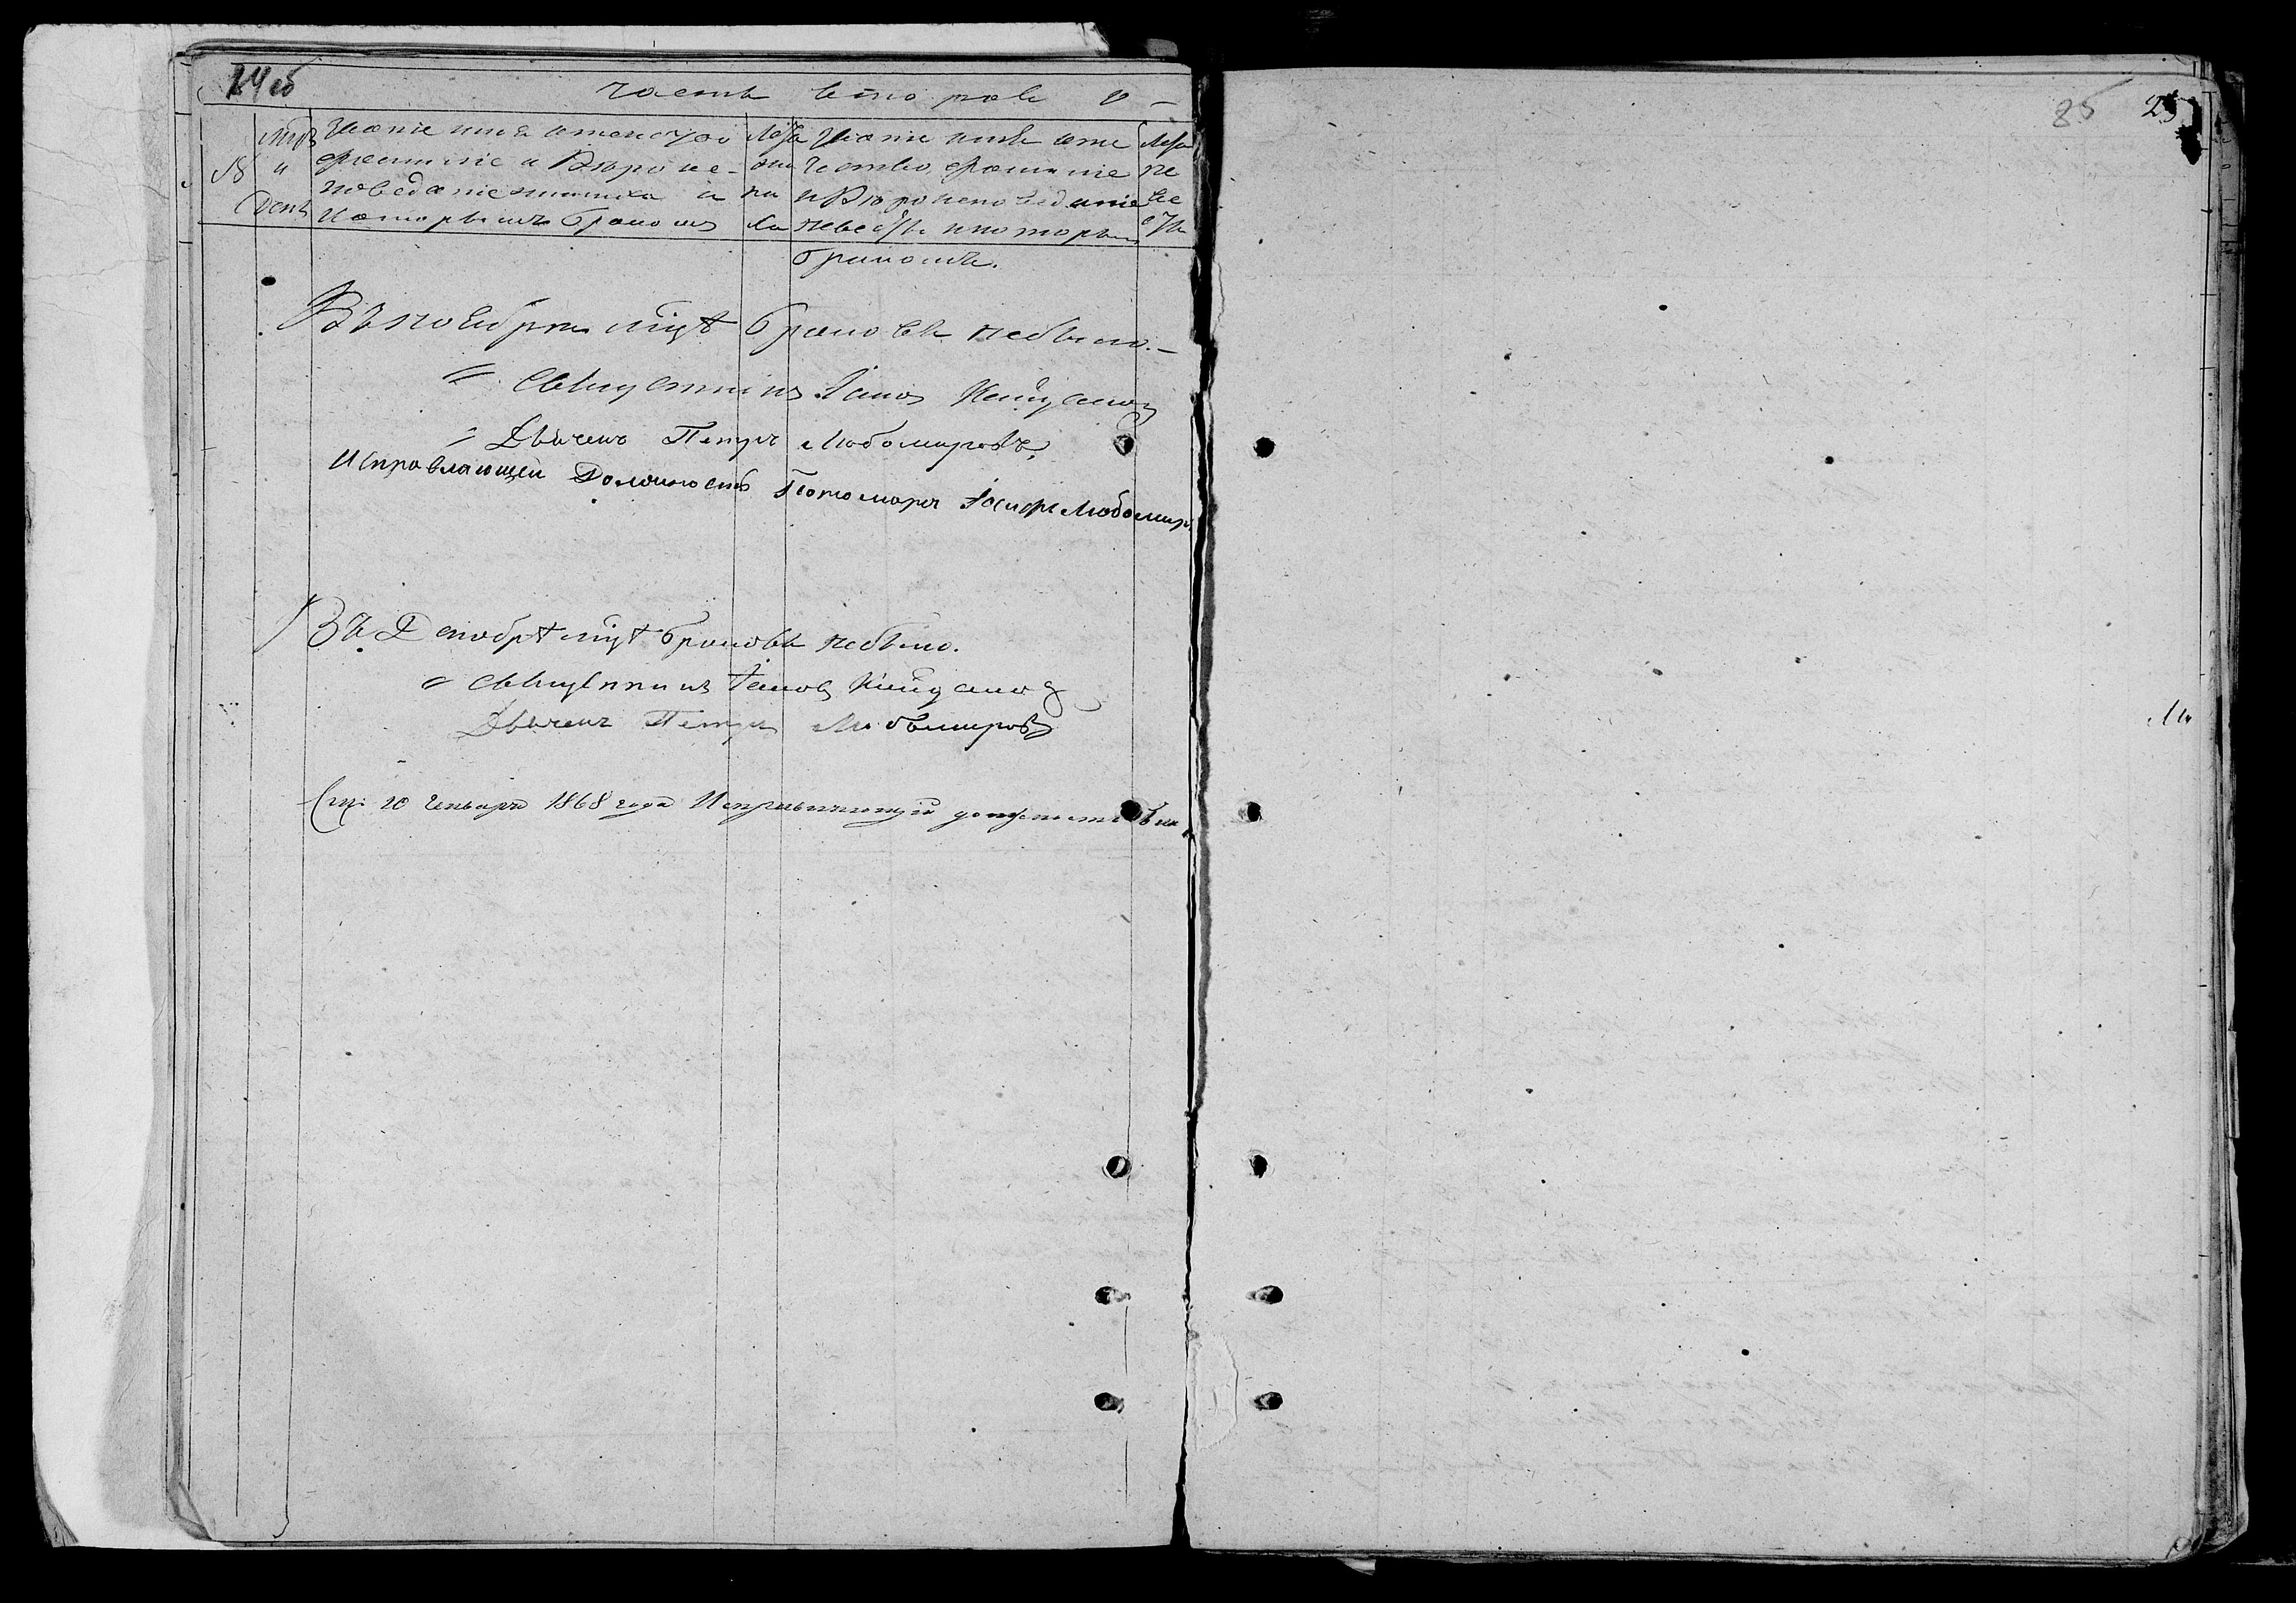 24об
часть вторая о
№
Мцъ и День
Званіе имя отечество
фамиліе и Вѣроис-
поведаніе жениха и
которымъ бракомъ
Лѣта жениха
Званіе имя оте
чество, фамиліе
и Вѣроисповеданіе
невесты и которымъ
бракомъ.
Лѣта невесты
Въ ноябрѣ мцѣ браковъ небыло.
Священникъ Іаковъ
Дьячекъ Петръ Любомировъ
Исправляющей Должность Пономаря Любомир
Въ Декабрѣ мцѣ браковъ небыло.
Священникъ Іаковъ
Дьячекъ Петръ Любомировъ
10 Генваря 1868 года Исправляющій должность
25
25